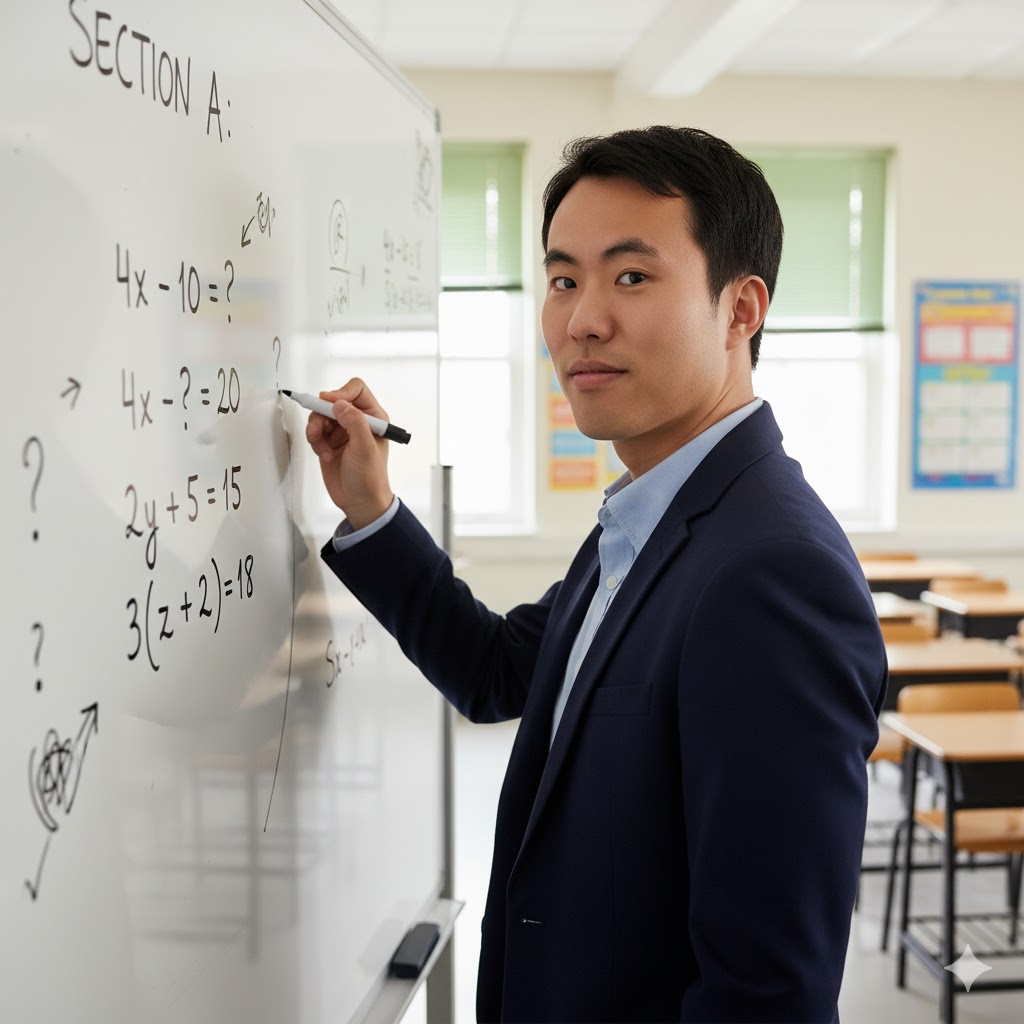 SECTION A:
4x - 10 = ?
?
4x - ? = 20
?
2y + 5 = 15
?
3(z + 2) = 18